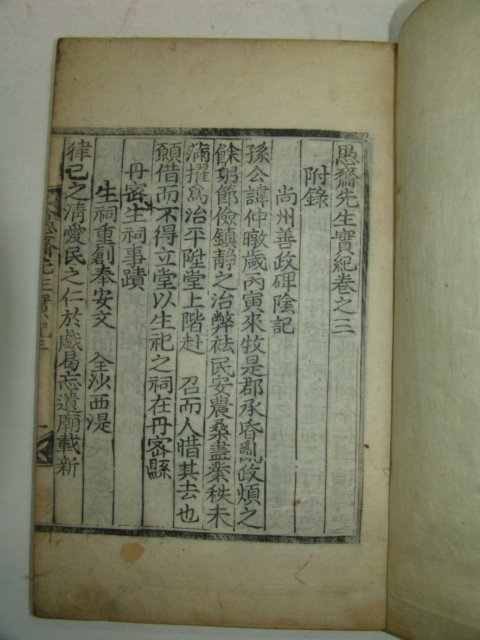 愚齋先生實紀卷之三
附錄
尚州善政碑陰記
孫公諱仲暾歲丙寅來牧是郡承昏亂政煩之
餘躬節儉鎭靜之治弊祛民安農桑盡業秩未
滿擢爲治平陞堂上階赴 召而人惜其去也
願借而不得立堂以生祀之祠在丹密縣
丹密生祠事蹟
生祠重創奉安文 全沙西湜
律己之淸愛民之仁於戲曷忘遺廟載新